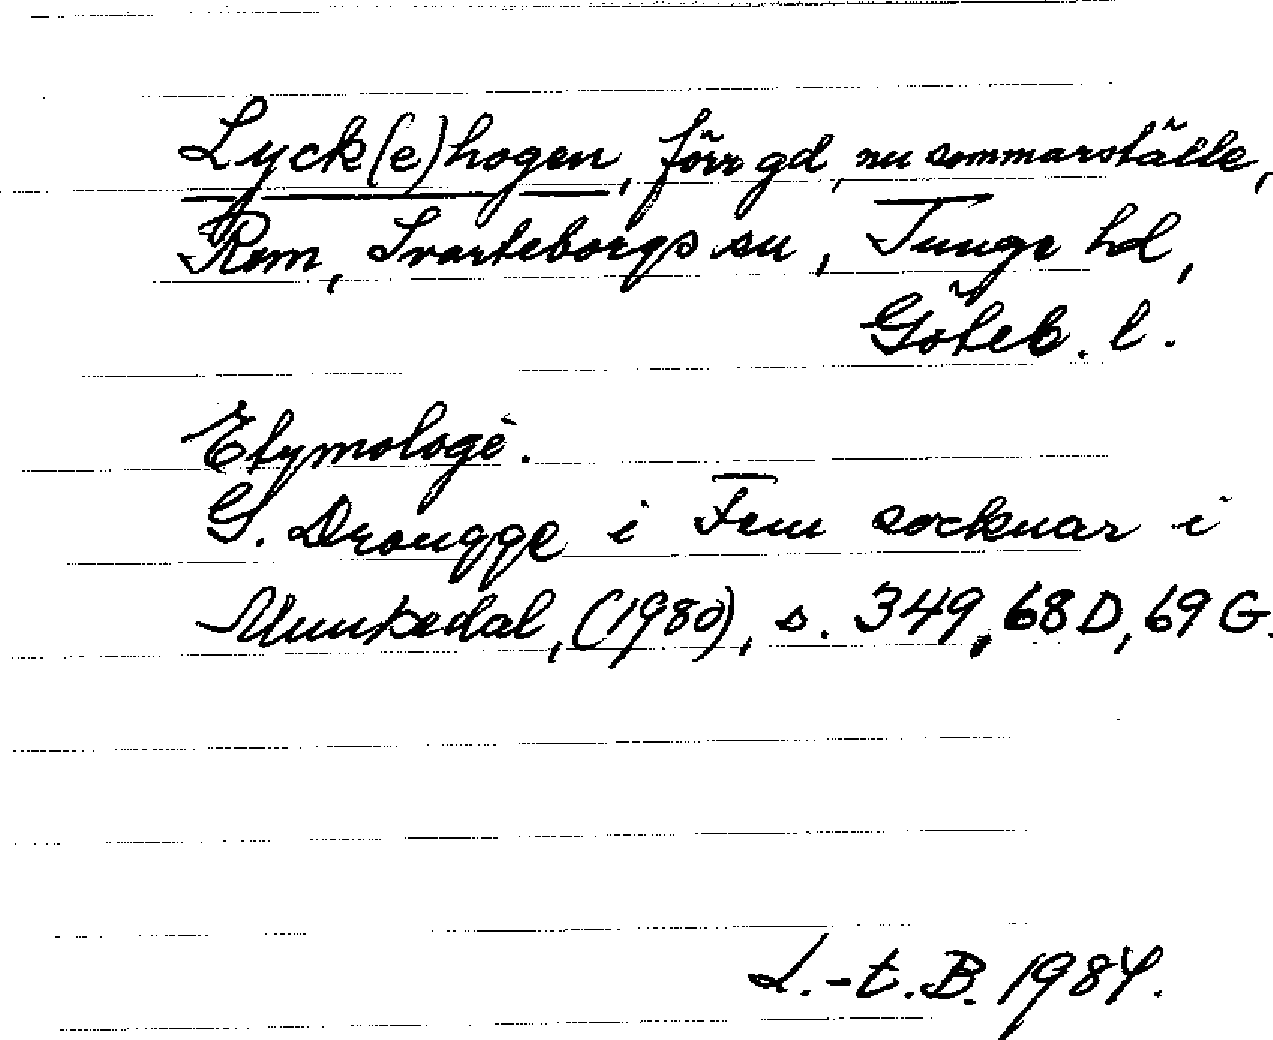 Lyck(e)hogen, förr gd, nu sommarställe,
Rom, Svarteborgs sn, Tunge hd,
Göteb. l.
Etymologi.
G. Drougge i Fem socknar i
Munkedal, (1980), s. 349, 68 D, 69 G.
L.-t. B. 1984.